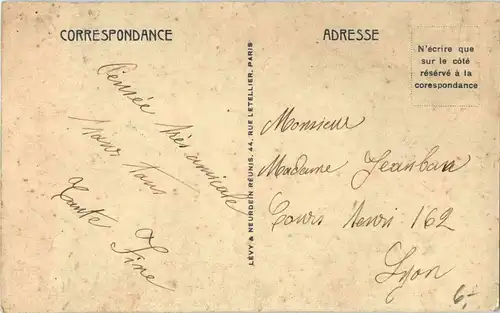 CORRESPONDANCE
Pensée très amicale
pour tous
Tante Fine
LÉVY & NEURDEIN RÉUNIS, 44, RUE LETELLIER, PARIS
ADRESSE
N'écrire que
sur le côté
réservé à la
corespondance
Monsieur
Madame Jeanban
Cours Henri 162
Lyon
6-